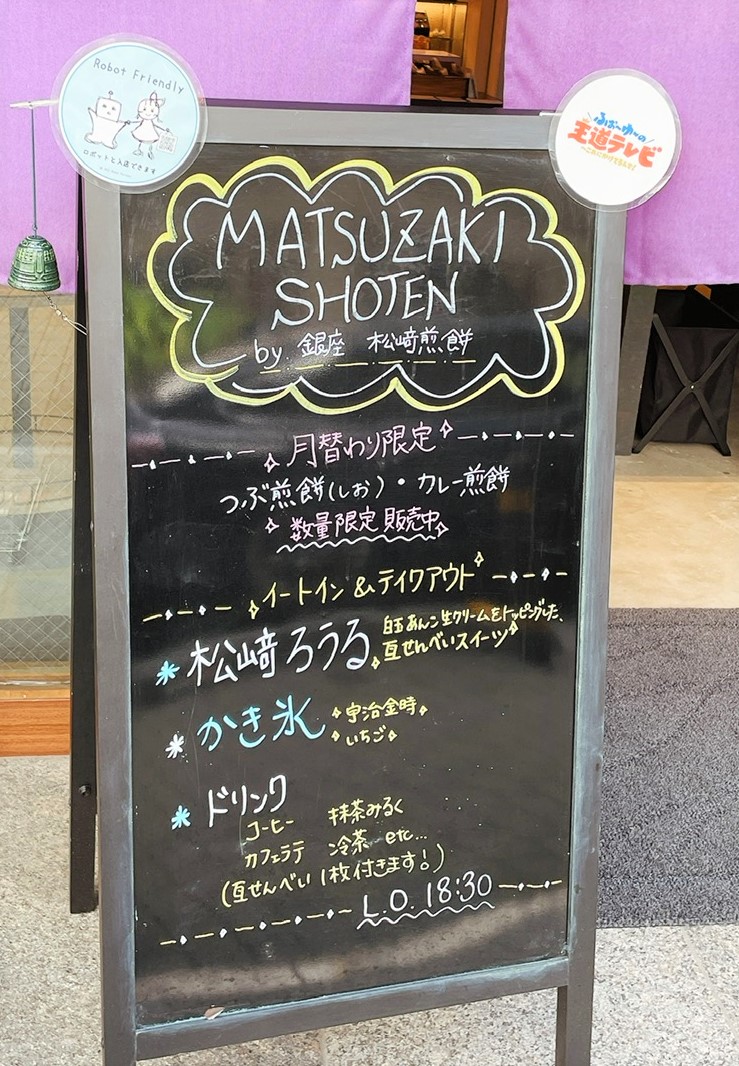 Robot Friendly
ロボットと入店できます
ふぉ〜ゆ〜の
王道テレビ
MATSUZAKI
SHOTEN
by 銀座 松﨑煎餅
月替わり限定
つぶ煎餅(しお)・カレー煎餅
数量限定販売中
イートイン&テイクアウト
* 松﨑ろうる 白玉あんこ生クリームをトッピングした、
亙せんべいスイーツ
* かき氷 宇治金時
いちご
* ドリンク
コーヒー 抹茶みるく
カフェラテ 冷茶 etc...
(亙せんべい1枚付きます!)
L.O. 18:30